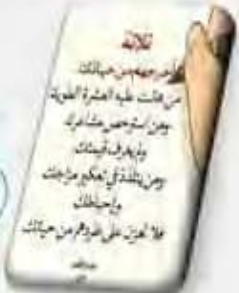 ثلاثة
أخرجهم من حياتك
من هانت عليه العشرة الطويلة
ومن استرخص مشاعرك
ولم يعرف قيمتك
ومن يتلذذ في تعكير مزاجك
وإحباطك
فلا تحزن على فقدهم من حياتك